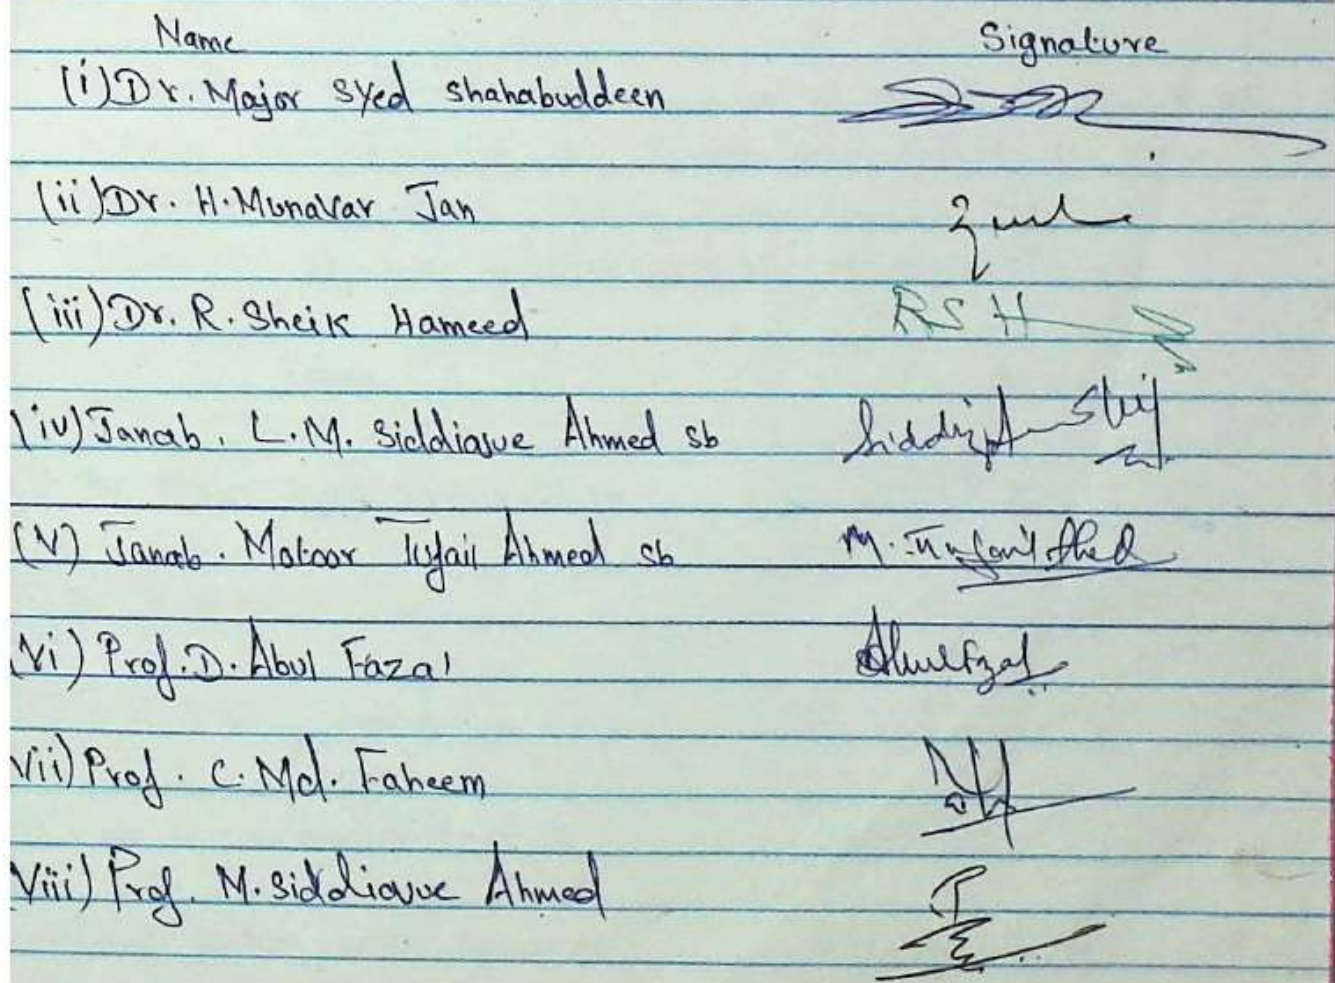 Name Signature
(i) Dr. Major Syed Shahabuddeen
(ii) Dr. H. Munavar Jan
(iii) Dr. R. Sheik Hameed RSH
(iv) Janab. L.M. Siddique Ahmed sb
(v) Janab. Tufail Ahmed sb
(vi) Prof. D. Abul Fazal Abul Fazal
(vii) Prof. C. Md. Faheem
(viii) Prof. M. Siddique Ahmed